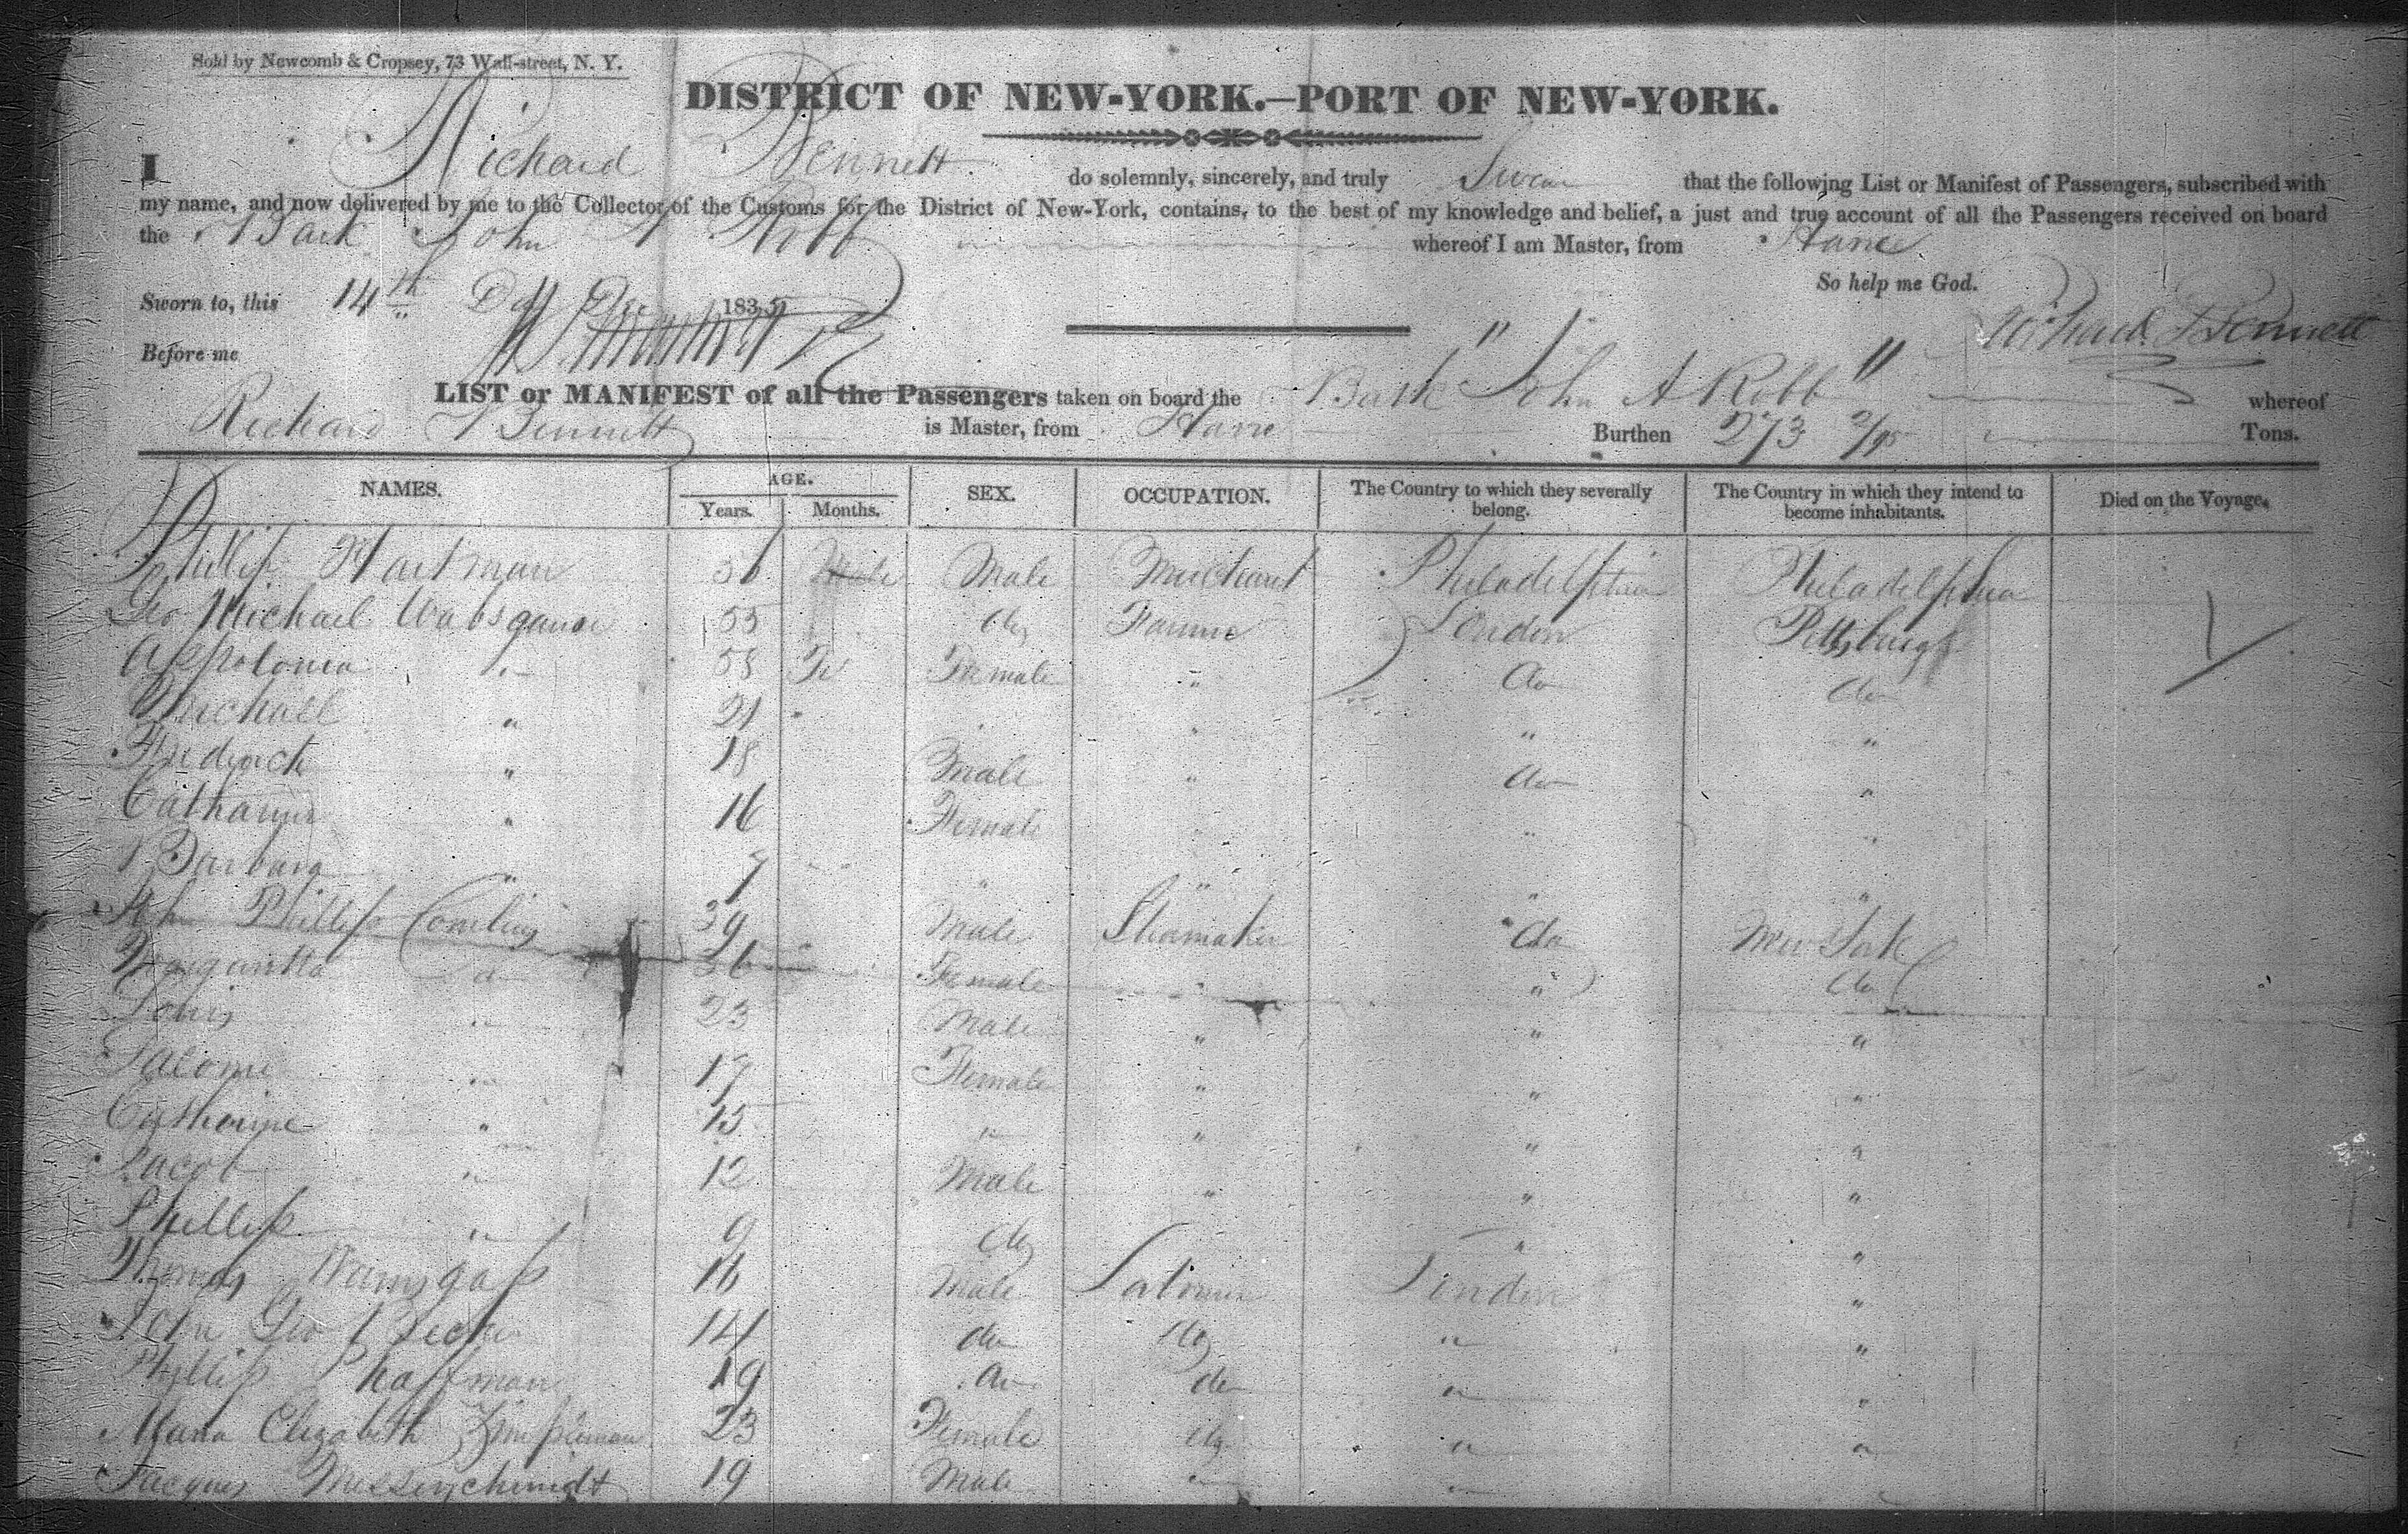 Sold by Newcomb & Cropsey, 73 Wall-street, N. Y.
DISTRICT OF NEW-YORK.—PORT OF NEW-YORK.
I Richard Bennett do solemnly, sincerely, and truly Swear that the following List or Manifest of Passengers, subscribed with
my name, and now delivered by me to the Collector of the Customs for the District of New-York, contains, to the best of my knowledge and belief, a just and true account of all the Passengers received on board
the Bark John A Robb whereof I am Master, from Havre
So help me God.
Sworn to, this 14th Day Dec 183
Richard Bennett
Before me
LIST or MANIFEST of all the Passengers taken on board the Bark "John A Robb" whereof
Richard Bennett is Master, from Havre Burthen 273 /95 Tons.
NAMES. AGE. Years. Months. SEX. OCCUPATION. The Country to which they severally belong. The Country in which they intend to become inhabitants. Died on the Voyage.
Phillip Hartman 36 Male Male Merchant Philadelphia Philadelphia
Geo Michael Wabsganse 55 do Farmer Pittsburgh
Appolonia " 58 Fe Female " do do
Michall " 21 " " "
Frederick " 18 Male " do "
Catharine " 16 Female " "
Barbara " 7 " " " "
Phillip 39 Male Shoemaker do New York
Margaretta do 36 Female " " do
Louis " 23 Male " " "
Salome " 17 Female " " "
Catharine " 15 " " " "
Jacob " 12 Male " " "
Phillip " 9 do " "
Thomas Wamsgass 16 Male "
John Geo Becker 14 do do " "
Phillip Khaffman 19 do do " "
Maria Elizabeth Zimpleman 23 Female do " "
Jacques Messerschmidt 19 Male " "